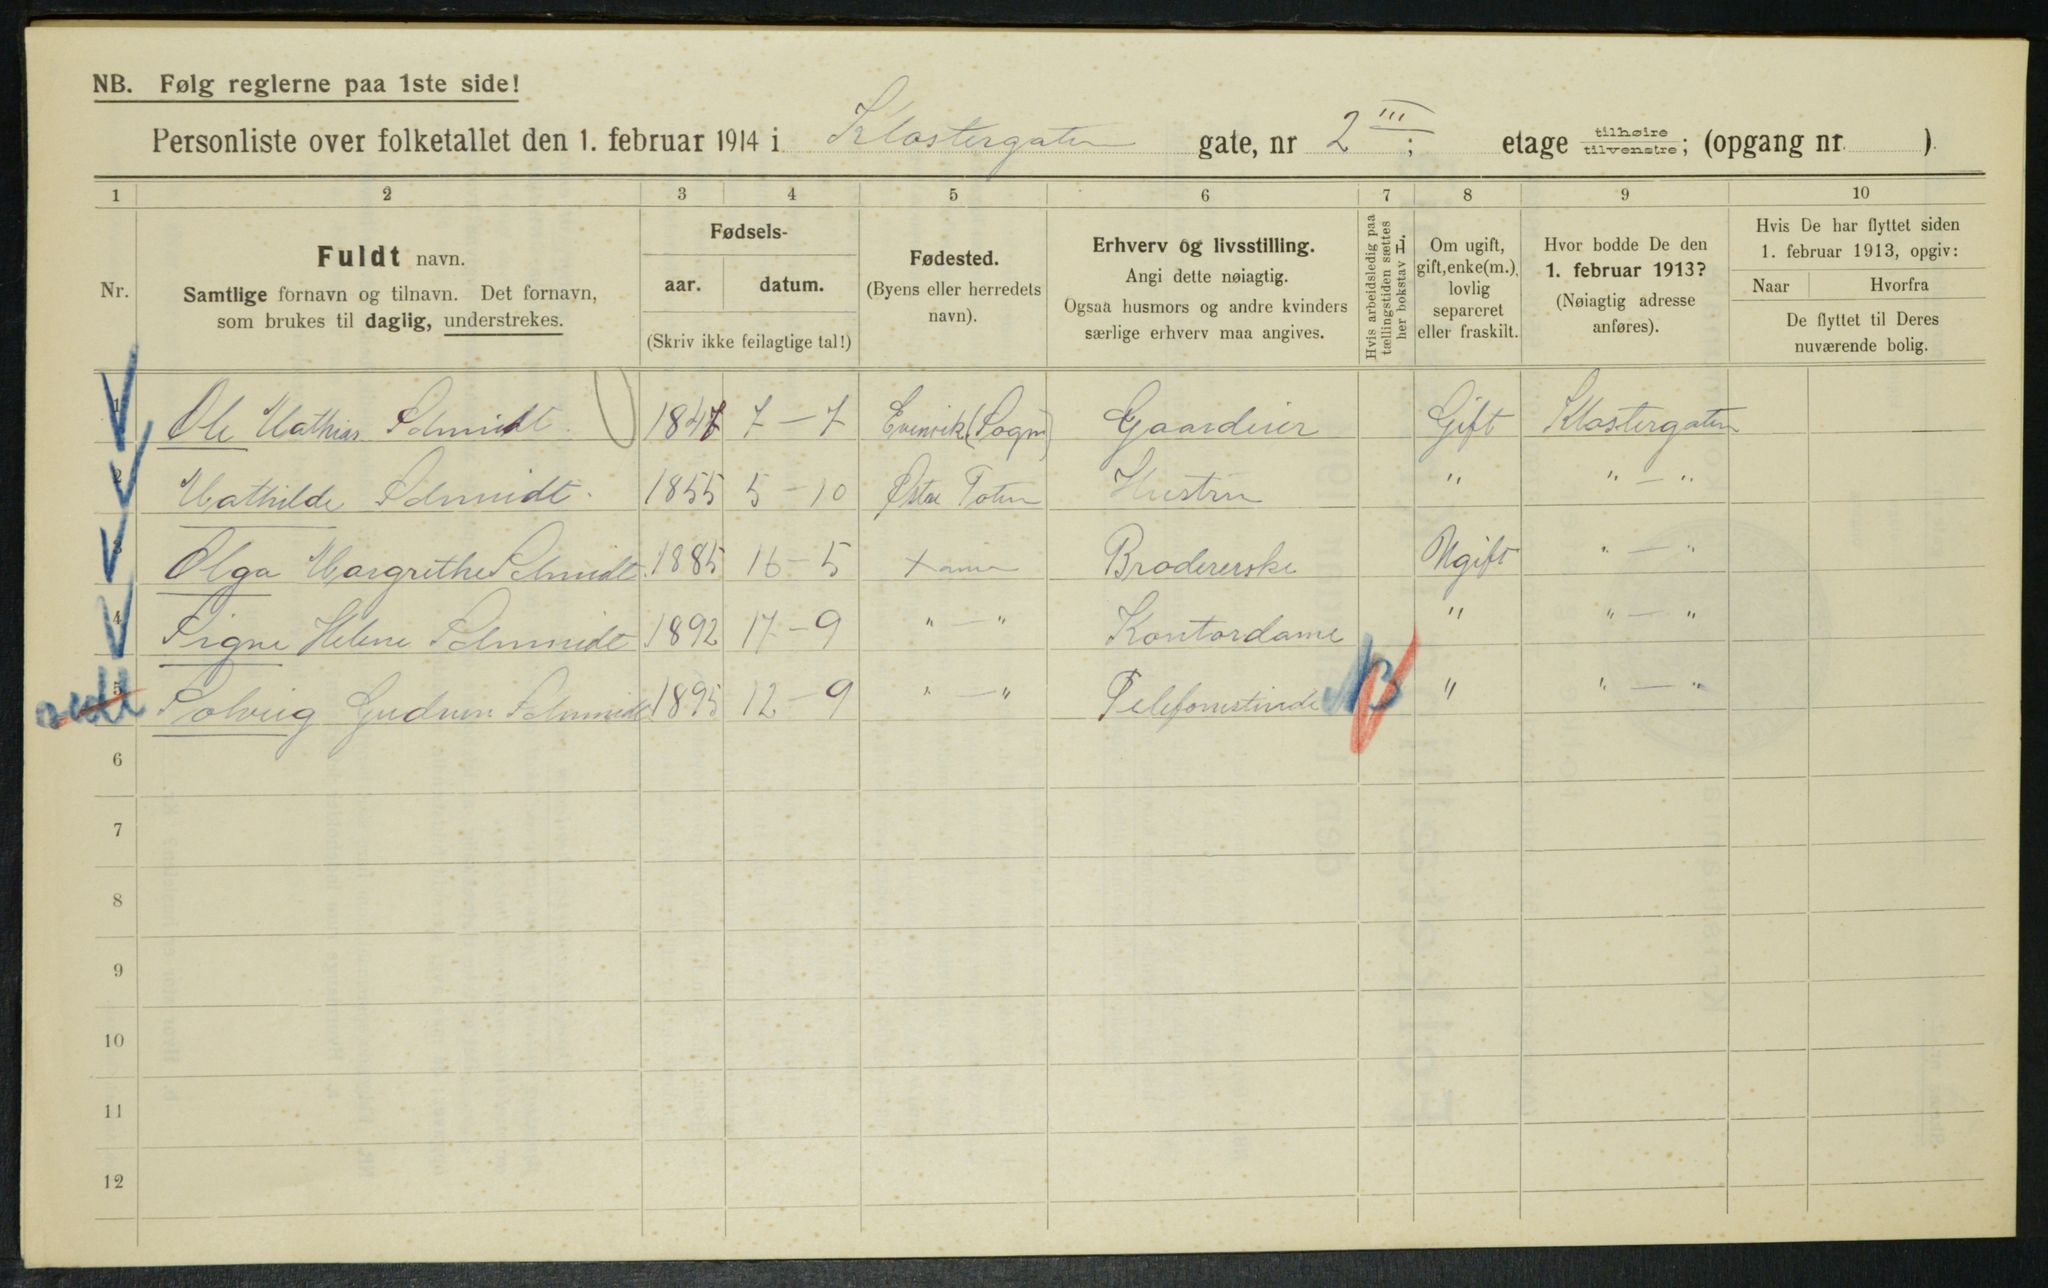 NB. Følg reglerne paa 1ste side!
Personliste over folketallet den 1. februar 1914 i Klostergaten gate, nr 2 III; etage tilhøire tilvenstre; (opgang nr. ).
1 2 3 4 5 6 7 8 9 10
Nr.
Fuldt navn.
Samtlige fornavn og tilnavn. Det fornavn,
som brukes til daglig, understrekes.
Fødsels-
aar. datum.
(Skriv ikke feilagtige tal!)
Fødested.
(Byens eller herredets
navn).
Erhverv og livsstilling.
Angi dette nøiagtig.
Ogsaa husmors og andre kvinders
særlige erhverv maa angives.
Hvis arbeidsledig paa
tællingstiden sættes
her bokstav L.
Om ugift,
gift, enke(m.),
lovlig
separeret
eller fraskilt.
Hvor bodde De den
1. februar 1913?
(Nøiagtig adresse
anføres).
Hvis De har flyttet siden
1. februar 1913, opgiv:
Naar Hvorfra
De flyttet til Deres
nuværende bolig.
1 Ole Mathias Schmidt. 1847 7-7 Evenvik (Sogn) Gaardeier Gift Klostergaten
2 Mathilde Schmidt. 1855 5-10 Østre Toten Hustru " "-"
3 Olga Margrethe Schmidt. 1885 16-5 Xania Brodererske Ugift "-"
4 Signe Helene Schmidt 1892 17-9 "-" Kontordame " "-"
5 Solveig Gudrun Schmidt 1895 12-9 "-" Telefonistinde " "-"
6
7
8
9
10
11
12